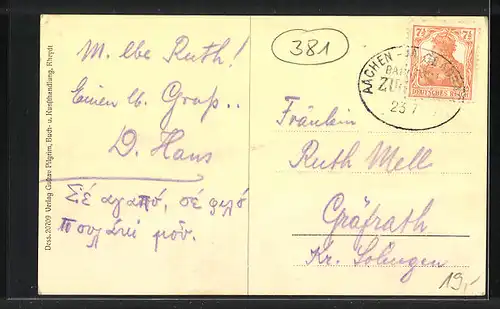 M. lbe Ruth!
Einen lb. Gruß..
D. Hans
Σέ αγαπό, σέ φιλό
πουλάκι μου.
Dess. 20709 Verlag Gustav Pilgrim, Buch- u. Kunsthandlung, Rheydt
381
7½ 7½
DEUTSCHES REICH
AACHEN
BAHN
ZUG
23 7
Fräulein
Ruth Mell
Gräfrath
Kr. Solingen
19,-